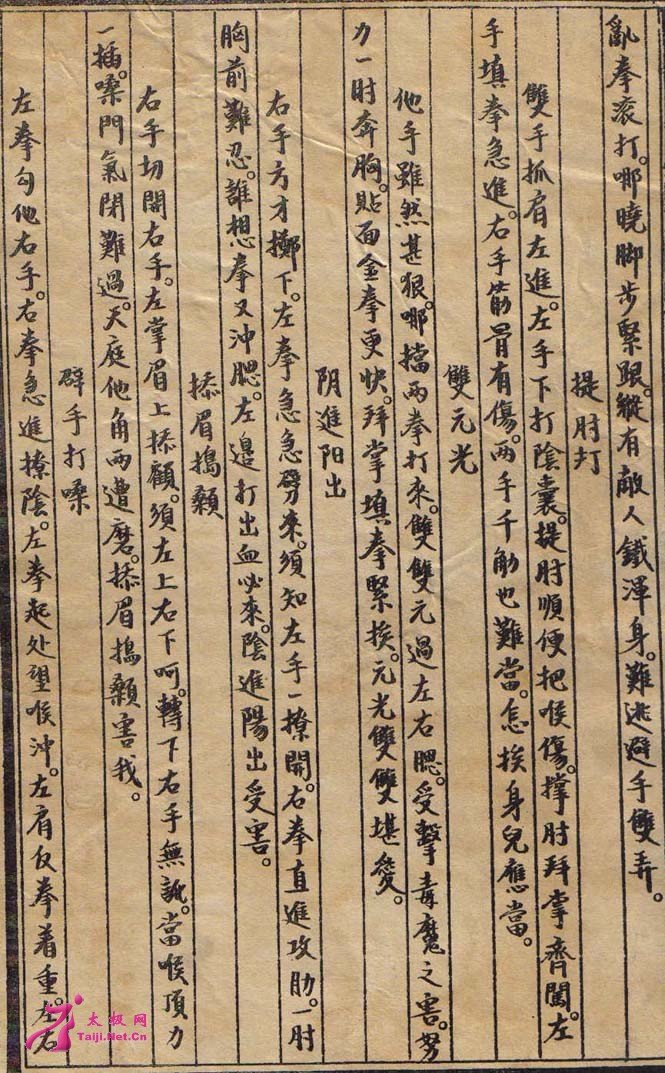 亂拳滚打。哪曉脚步緊跟。縱有敵人鐵渾身。難逃避手雙弄。
提肘打
雙手抓肩左進。左手下打陰囊。提肘順便把喉傷。撑肘拜掌齊闖。左
手填拳急進。右手筋骨有傷。两手千觔也難當。怎挨身兒應當。
雙元光
他手雖然甚狠。哪擋两拳打來。雙雙元過左右腮。受擊毒魔之害。努
力一肘奔胸。貼面金拳更快。拜掌填拳緊挨。元光雙雙堪愛。
阴進阳出
右手方才擲下。左拳急急劈来。須知左手一撩開。右拳直進攻肋。一肘
胸前難忍。誰想拳又沖腮。左邉打出血必來。陰進陽出受害。
搽眉搗顙
右手切開右手。左掌眉上搽顧。須左上右下呵。轉下右手無訛。當喉頂力
一插。嗓門氣閉難過。天庭他角两遭磨。搽眉搗顙害我。
劈手打嗓
左拳勾他右手。右拳急進撩陰。左拳起处望喉沖。左肩仅拳着重。左右
太极网
Taiji.Net.Cn